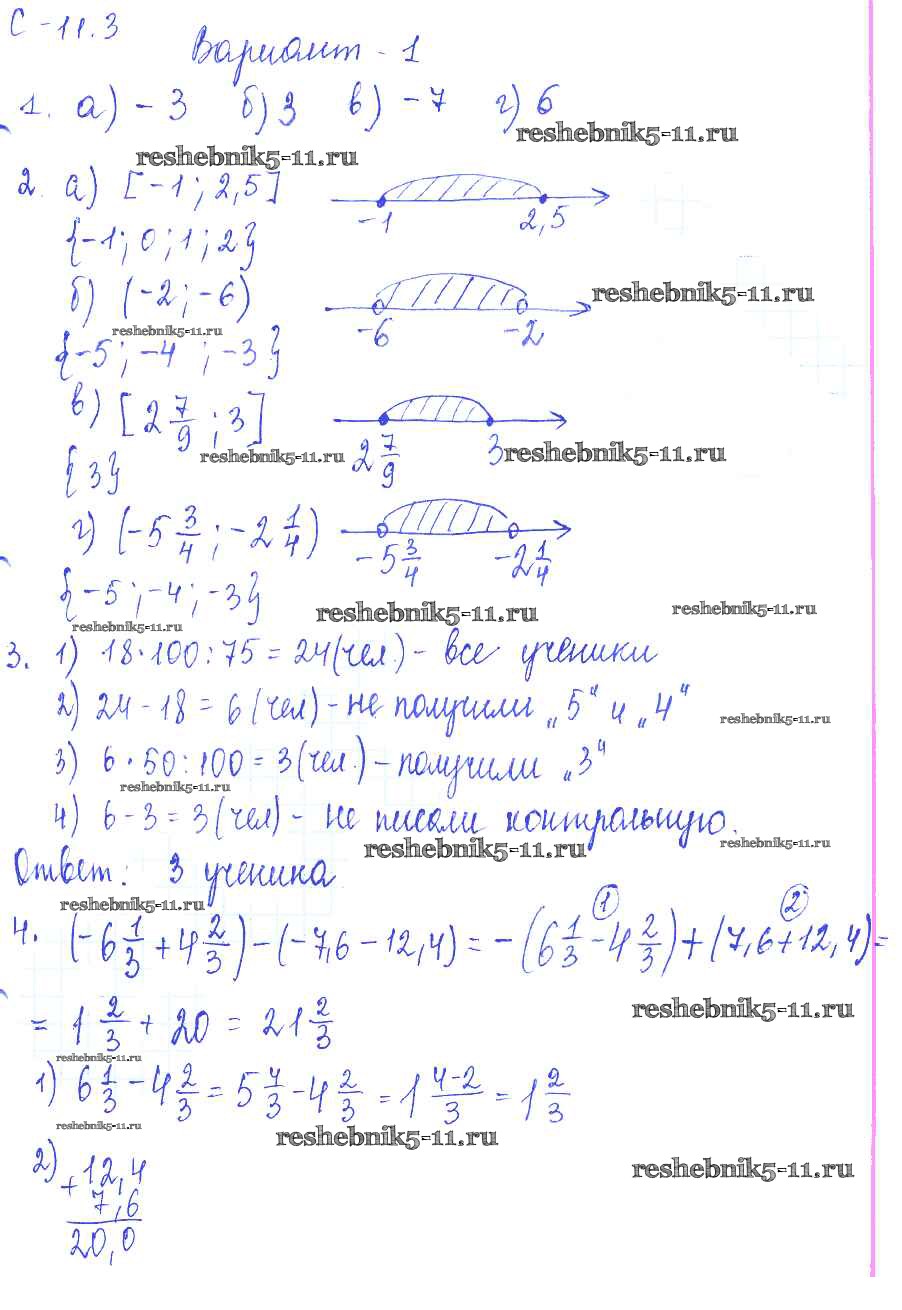 С-11.3
Вариант-1
1. а) -3 б) 3 в) -7 г) 6
reshebnik5-11.ru
reshebnik5-11.ru
2. а) [-1; 2,5]
-1 2,5
{-1; 0; 1; 2}
б) (-2; -6)
reshebnik5-11.ru
-6 -2
reshebnik5-11.ru
{-5; -4; -3}
в) [2 7/9; 3]
2 7/9 3
reshebnik5-11.ru
reshebnik5-11.ru
{3}
г) (-5 3/4; -2 1/4)
-5 3/4 -2 1/4
{-5; -4; -3}
reshebnik5-11.ru
reshebnik5-11.ru
reshebnik5-11.ru
3. 1) 18·100:75=24(чел.)- все ученики
2) 24-18=6(чел)- не получили „5" и „4"
reshebnik5-11.ru
3) 6·50:100=3(чел.)- получили „3"
reshebnik5-11.ru
4) 6-3=3(чел)- не писали контрольную.
reshebnik5-11.ru
reshebnik5-11.ru
Ответ: 3 ученика
reshebnik5-11.ru
1 2
4. (-6 1/3 + 4 2/3) - (-7,6 - 12,4) = -(6 1/3 - 4 2/3) + (7,6 + 12,4) =
reshebnik5-11.ru
= 1 2/3 + 20 = 21 2/3
reshebnik5-11.ru
1) 6 1/3 - 4 2/3 = 5 4/3 - 4 2/3 = 1 4-2/3 = 1 2/3
reshebnik5-11.ru
reshebnik5-11.ru
2) +12,4
reshebnik5-11.ru
7,6
20,0